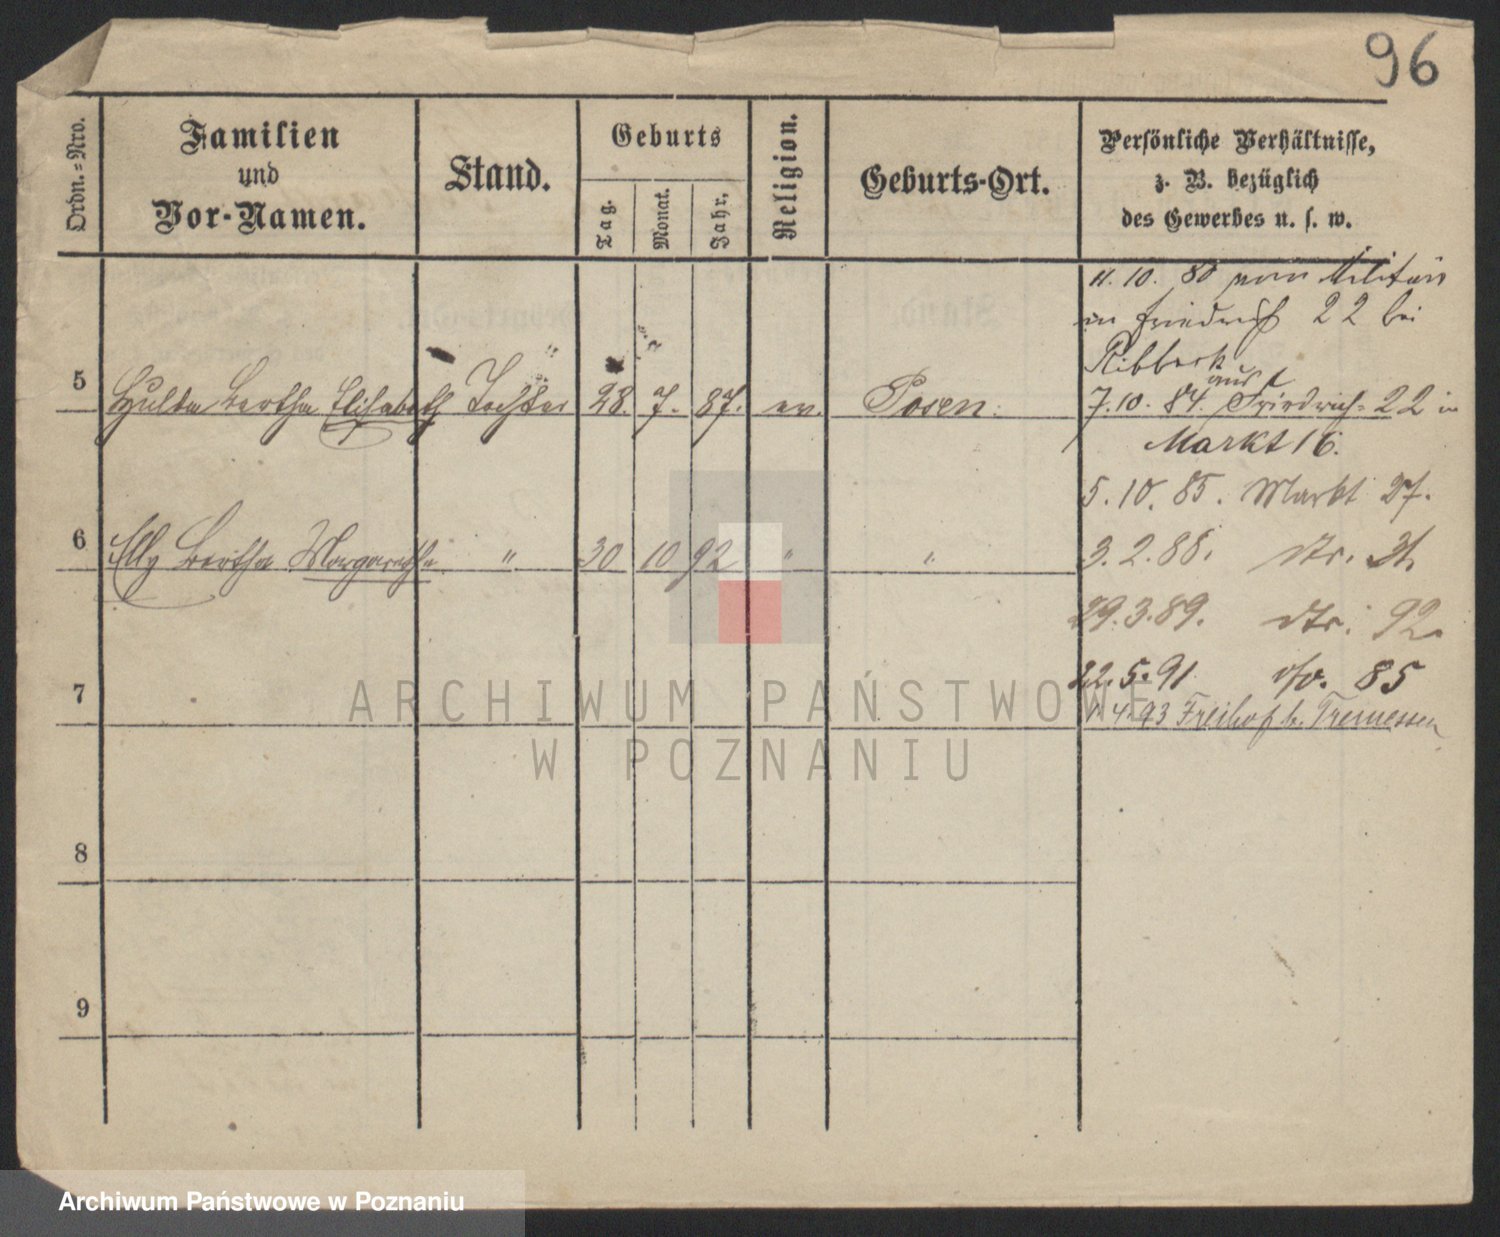 96
Ordn.-Nro.
Familien
und
Vor-Namen.
Stand.
Geburts
Tag.
Monat.
Jahr.
Religion.
Geburts-Ort.
Persönliche Verhältnisse,
z. B. bezüglich
des Gewerbes u. s. w.
11. 10. 80 vom Militär
in Friedrich 22 bei
Ribbeck
5 Hulda Bertha Elisabeth Tochter 28. 7. 87. ev. Posen.
aus
7. 10. 84. Friedrich- 22 in
Markt 16.
5. 10. 85. Markt 27.
6 Elly Bertha Margarethe " 30 10 92 " "
3. 2. 88. dto.
29. 3. 89. dto. 92
22. 5. 91 do. 85
7
4. 93 Freihof b. Tremessen
8
9
ARCHIWUM PAŃSTWOWE
W POZNANIU
Archiwum Państwowe w Poznaniu